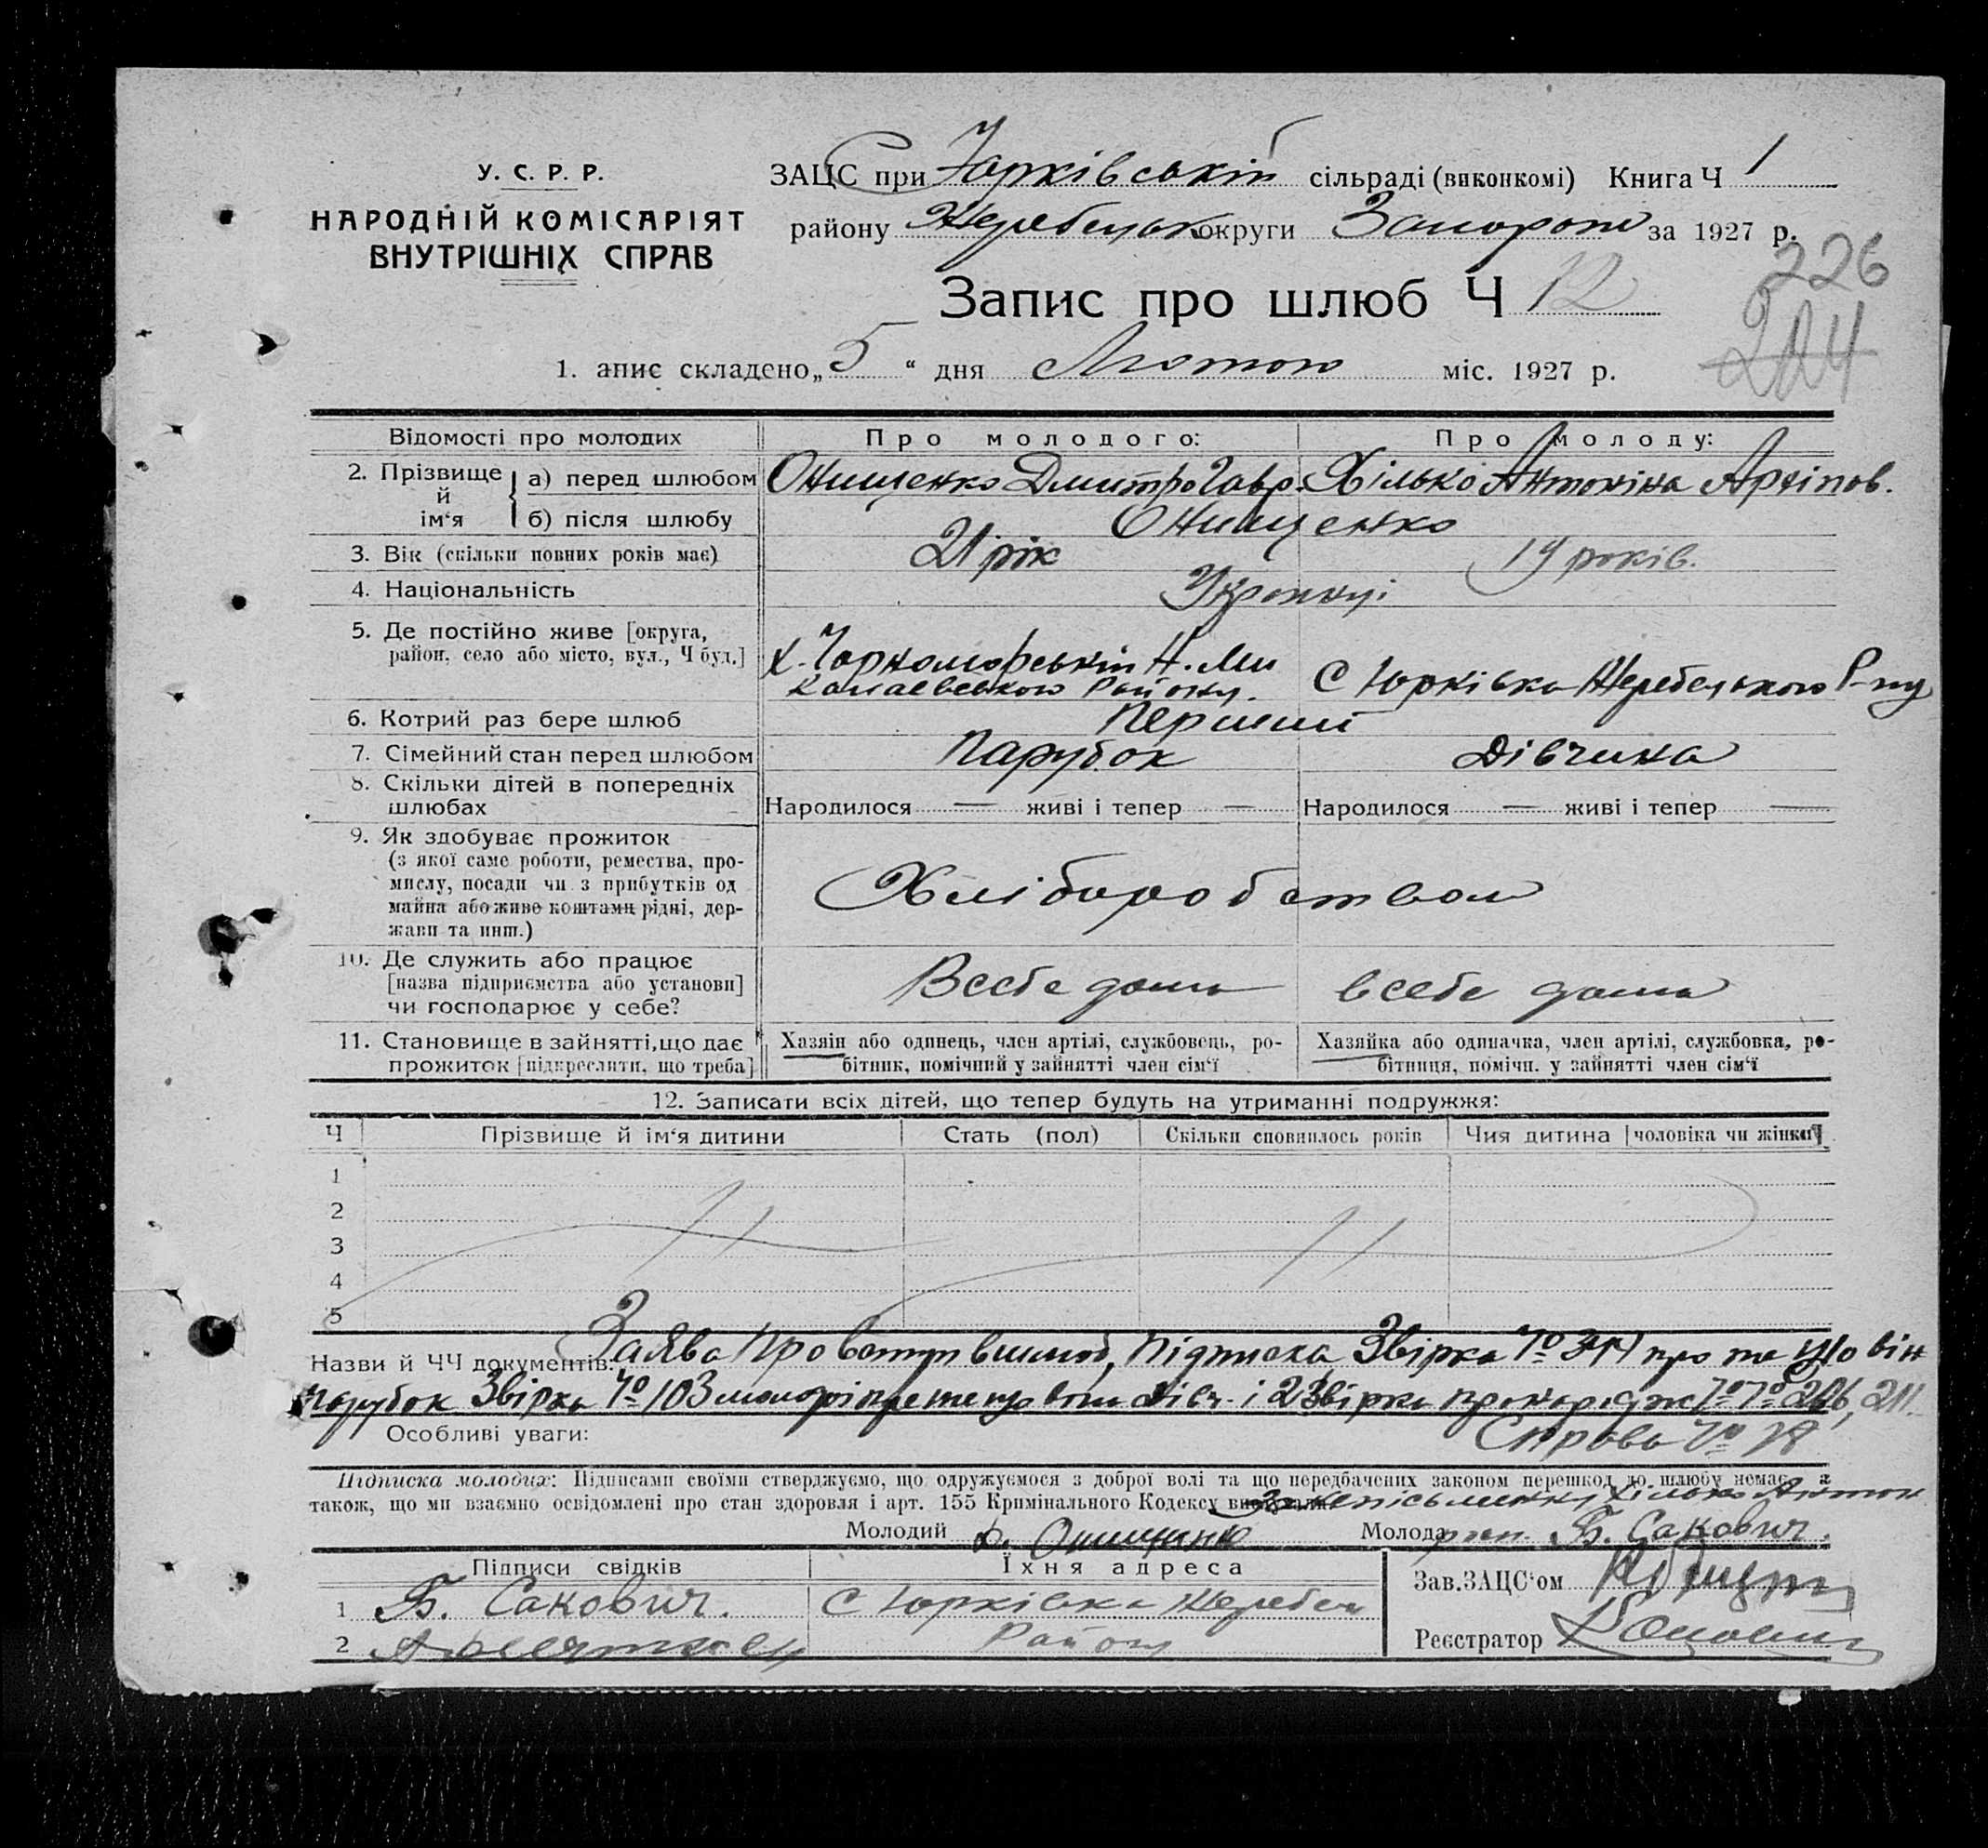 У. С. Р. Р.
НАРОДНІЙ КОМІСАРІЯТ
ВНУТРІШНІХ СПРАВ
ЗАЦС при Юрківській сільраді (виконкомі) Книга Ч 1
району Жеребецьк округи Запорож за 1927 р.
226
204
Запис про шлюб Ч 12
1. апис складено „ 5 “ дня Лютого міс. 1927 р.
Відомості про молодих Про молодого: Про молоду:
2. Прізвище й ім‘я а) перед шлюбом Онищенко Дмитро Гавр. Хілько Антоніна Архіпов.
б) після шлюбу Онищенко
3. Вік (скільки повних років має) 21 рік 19 років.
4. Національність Українці
5. Де постійно живе [округа,
район, село або місто, вул., Ч буд.] х. Чорноморськім Н. Ми
Району. С Юрківка Жеребецького Р-ну
6. Котрий раз бере шлюб Перший
7. Сімейний стан перед шлюбом Парубок Дівчина
8. Скільки дітей в попередніх
шлюбах Народилося — живі і тепер — Народилося — живі і тепер —
9. Як здобуває прожиток
(з якої саме роботи, ремества, про-
мислу, посади чи з прибутків од
майна або живе коштами рідні, дер-
жави та инш.)
Хліборобством
10. Де служить або працює
[назва підприємства або установи]
чи господарює у себе?
Всебе дома всебе дома
11. Становище в зайнятті, що дає
прожиток [підкреслити, що треба]
Хазяїн або одинець, член артілі, службовець, ро-
бітник, помічний у зайнятті член сім‘ї
Хазяйка або одиначка, член артілі, службовка, ро-
бітниця, помічн. у зайнятті член сім‘ї
12. Записати всіх дітей, що тепер будуть на утриманні подружжя:
Ч Прізвище й ім‘я дитини Стать (пол) Скільки сповнилось років Чия дитина [чоловіка чи жінки]
1
2
3
4
5
Назви й ЧЧ документів: Заява про вступ вшлюб, Підписка Звірка № про те що він
парубок Звірка № 103 молодої про те що вона дівч. і 2 Звірки про народж №№ 206, 211.
Особливі уваги: Справа № 12
Підписка молодих: Підписами своїми стверджуємо, що одружуємося з доброї волі та що передбачених законом перешкод до шлюбу немає, а
також, що ми взаємно освідомлені про стан здоровля і арт. 155 Кримінального Кодексу
За неписьменну Хілько Антон
Молодий Д. Онищенко Молода росп. Б. Сакович.
Підписи свідків Їхня адреса
1 Б. Сакович. С Юрківка Жеребец
2 Району
Зав.ЗАЦС‘ом
Реєстратор